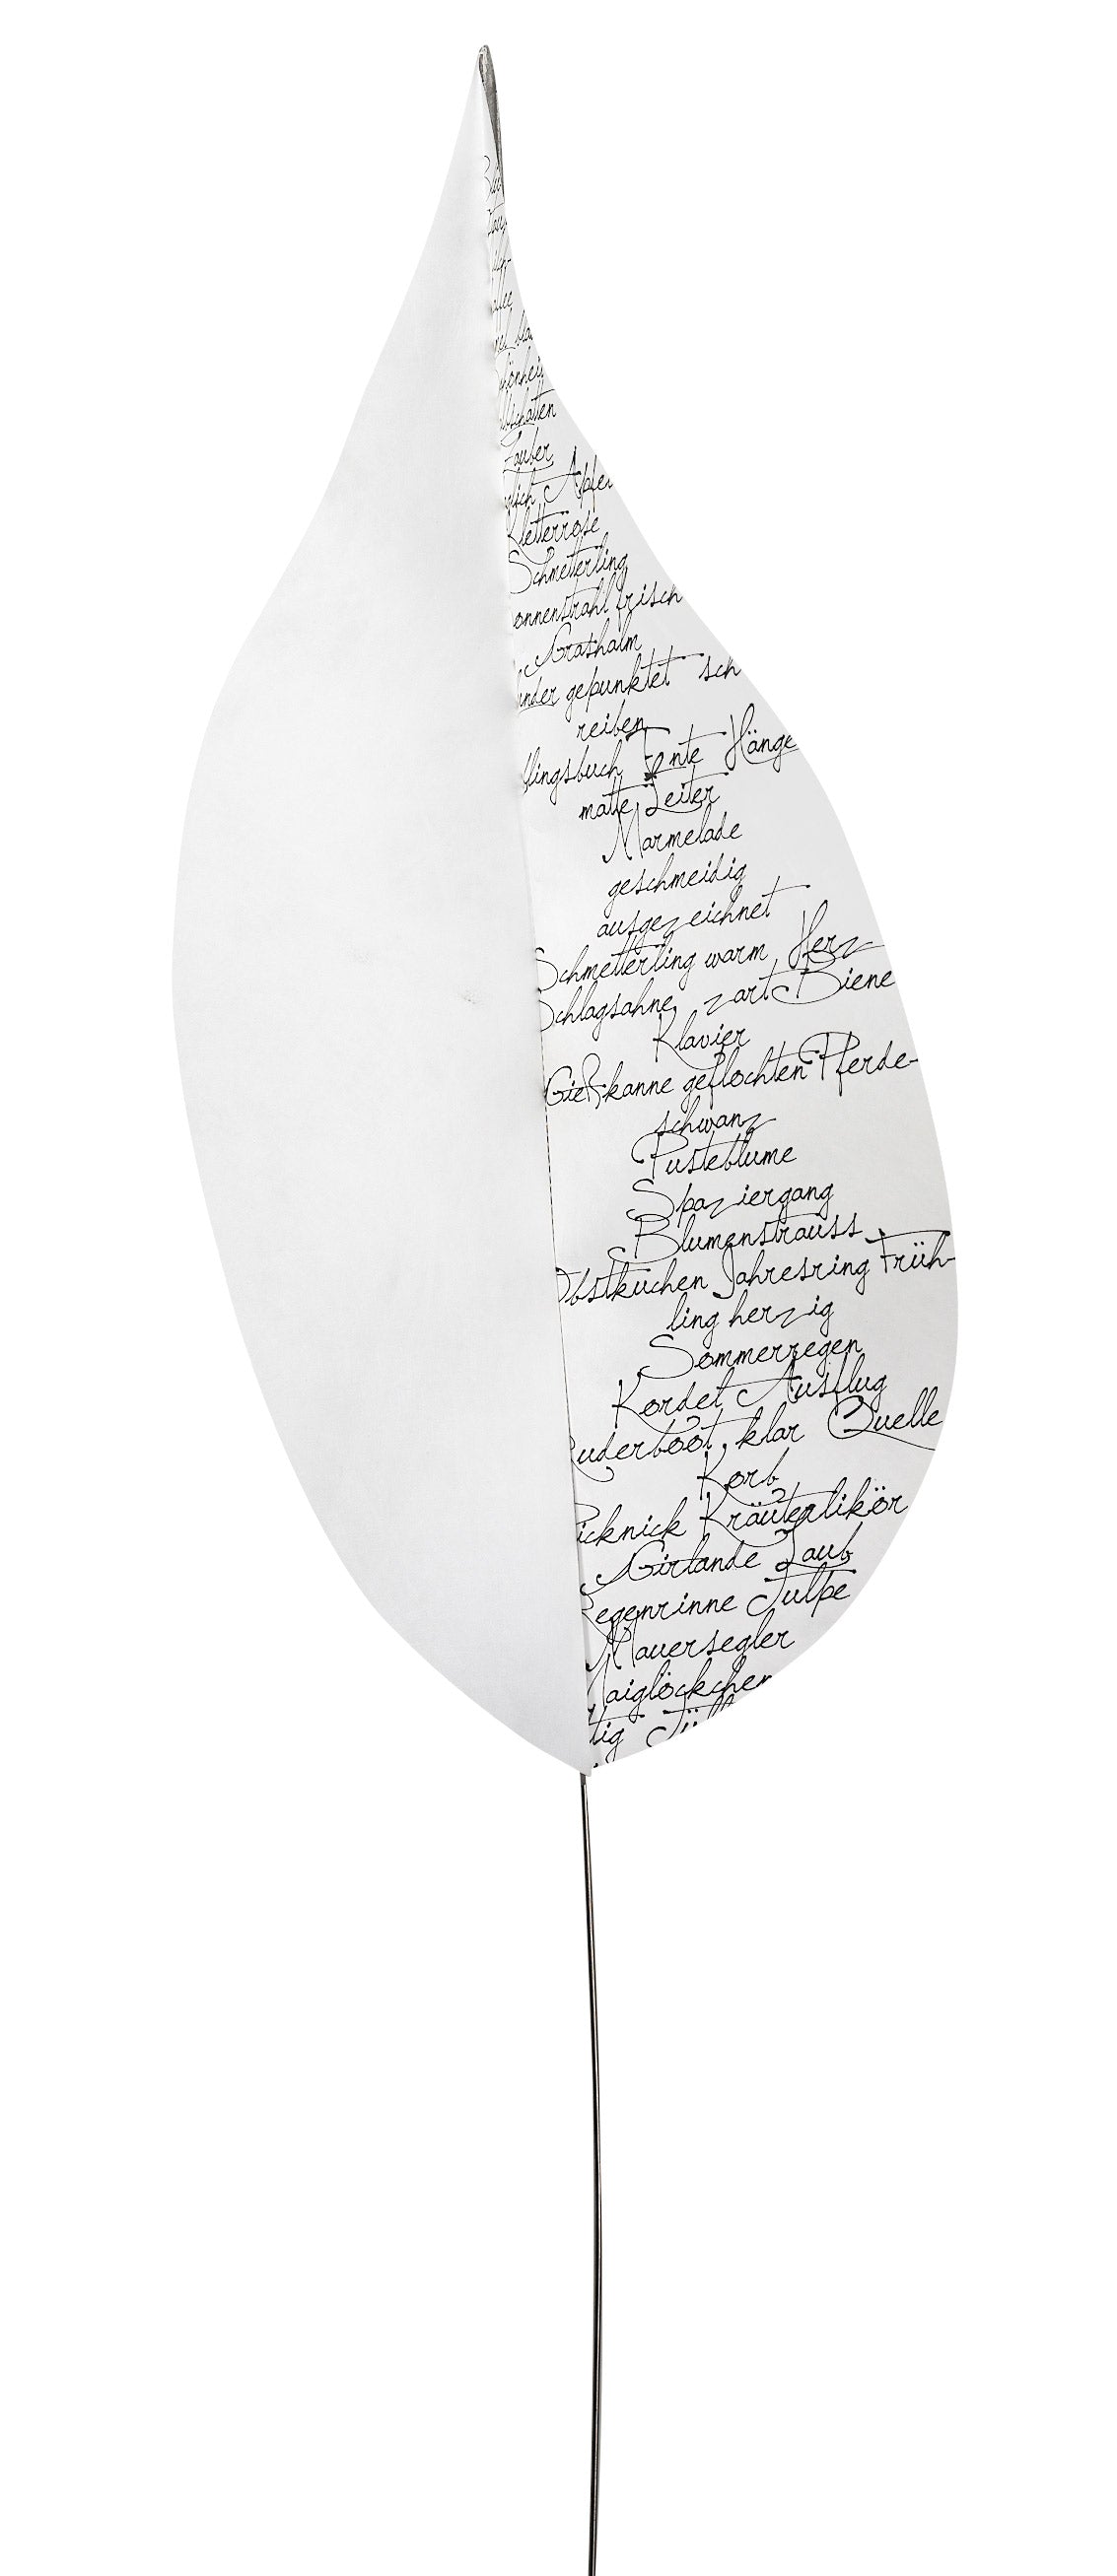 Zauber
Kletterrose
Schmetterling
onnenstrahl frisch
Grashalm
under gepunktet sch
reiben
llingsbuch Ente Hänge
matte Leiter
Marmelade
geschmeidig
ausgezeichnet
Schmetterling warm Herz
Schlagsahne zart Biene
Klavier
Gießkanne geflochten Pferde-
schwanz
Pusteblume
Spaziergang
Blumenstrauss
Obstkuchen Jahresring Früh-
ling herzig
Sommerregen
Kordel Ausflug
Ruderboot klar Quelle
Korb
Picknick Kräuterlikör
Girlande Laub
Regenrinne Tulpe
Mauersegler
Maiglöckchen